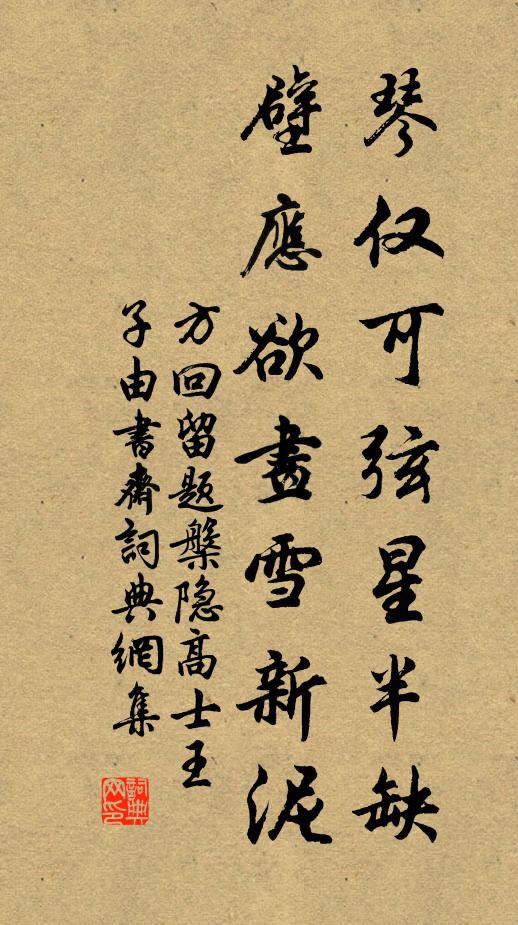 琴仅可弦星半缺
壁應欲畫雪新泥
方回留题槃隐高士王
子由書齋詞典網集
詞典
网印